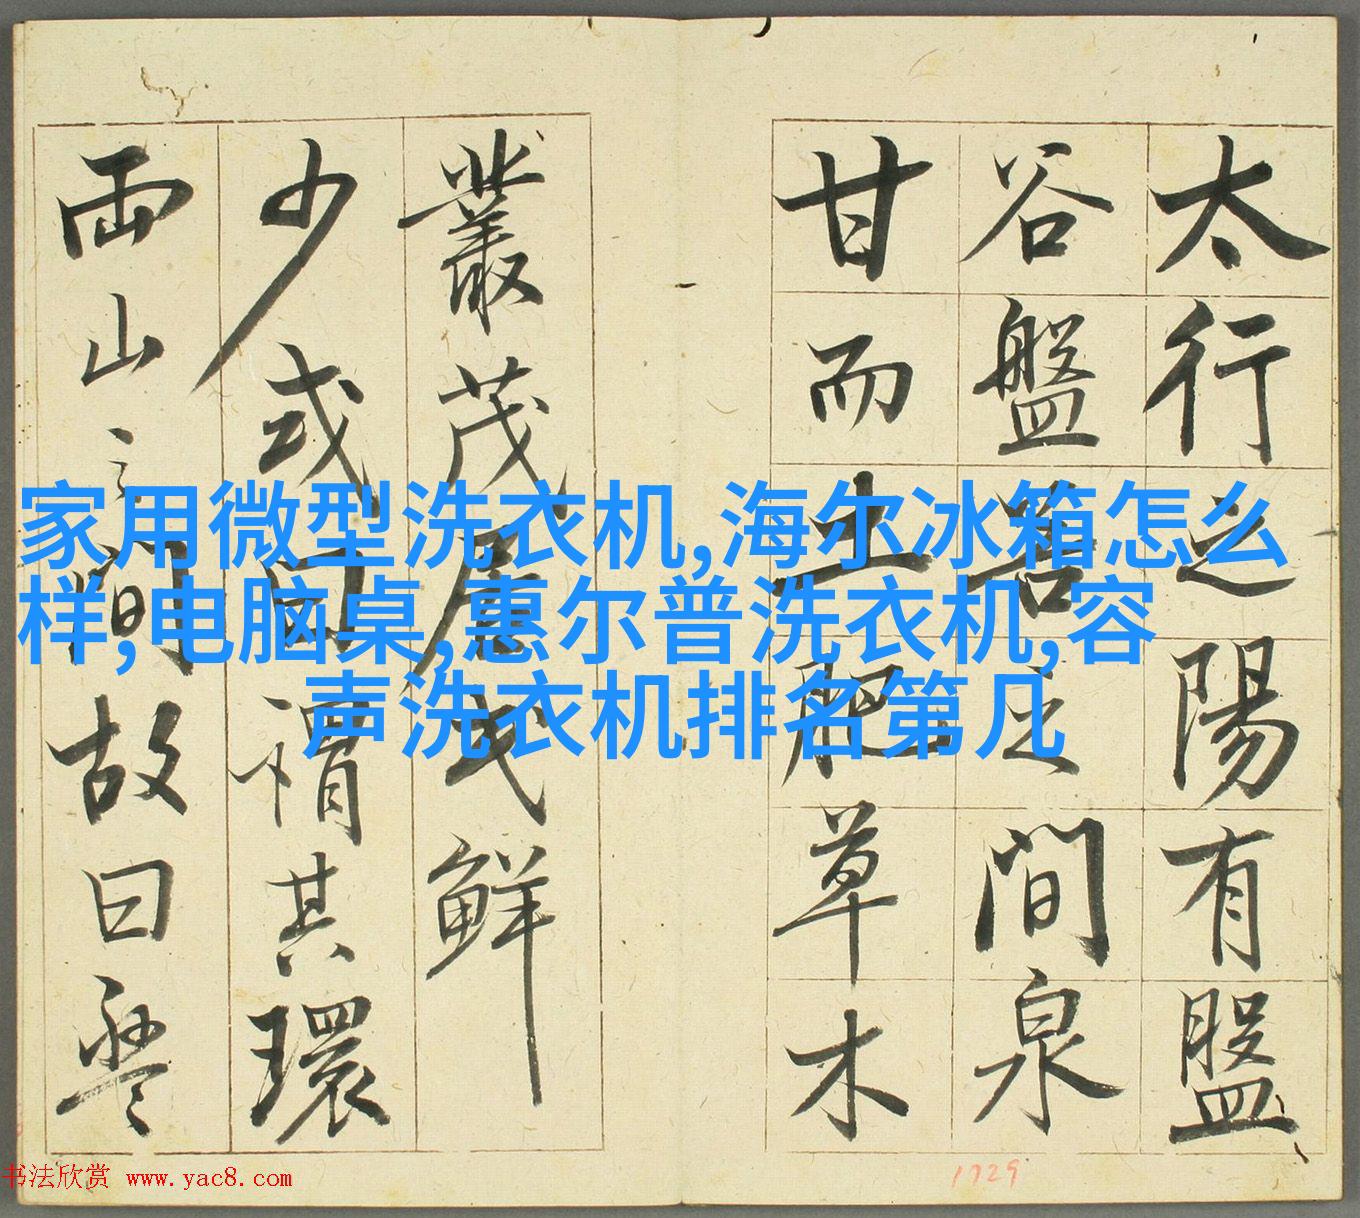 太行之陽有盤
谷盤谷之間泉
甘而土肥草木
叢茂居民鮮
少或曰謂其環
兩山之間故曰盤
家用微型洗衣机,海尔冰箱怎么
样,电脑桌,惠尔普洗衣机,容
声洗衣机排名第几
书法欣赏 www.yac8.com
1729